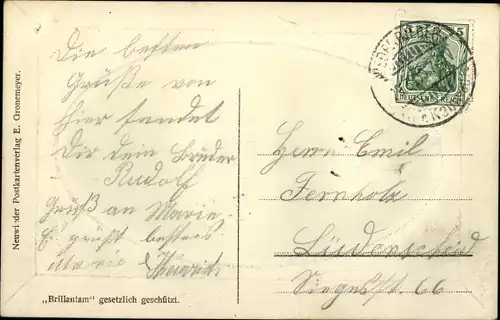 Die besten
Grüße von
hier sendet
Dir dein Bruder
Rudolf
Gruß an Marie.
Es grüßt bestens
Heinrich
Herrn Emil
Fernholz
Lüdenscheid
Siegesstr. 66
5
DEUTSCHES REICH
Neuwieder Postkartenverlag E. Gronemeyer.
„Brillantam" gesetzlich geschützt.